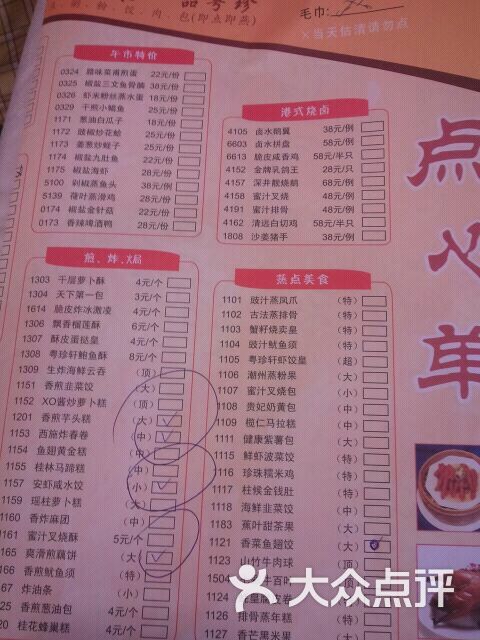 品粤珍
粥、粉、饺、肉、包(即点即蒸)
毛巾:
×当天估清请勿点
点心单
午市特价
0324 腊味菜甫煎蛋 22元/份
0325 椒盐三文鱼骨腩 38元/份
0326 虾米粉丝蒸水蛋 18元/份
0329 干煎小鲳鱼 25元/份
1171 葱油白瓜子 18元/份
1172 豉椒炒花蛤 25元/份
1173 姜葱炒蛏子 25元/份
1174 椒盐九肚鱼 22元/份
1175 椒盐海虾 28元/份
5100 剁椒蒸鱼头 38元/份
5139 荷叶蒸滑鸡 28元/份
0174 椒盐金针菇 22元/份
0173 香辣啤酒鸭 28元/份
港式烧卤
4105 卤水鹅翼 38元/例
6601 卤水拼盘 58元/例
6613 脆皮咸香鸡 58元/半只
4152 金牌乳鸽王 28元/只
4157 深井靓烧鹅 68元/例
4158 蜜汁叉烧 48元/例
4191 蜜汁排骨 48元/例
4162 清远白切鸡 58元/半只
1808 沙姜猪手 38元/例
煎、炸、焗
1303 千层萝卜酥 4元/个
1304 天下第一包 3元/个
1614 脆皮炸冰激凌 4元/个
1306 飘香榴莲酥 6元/个
1307 酥皮蛋挞皇 4元/个
1308 粤珍轩鲍鱼酥 8元/个
1309 生炸海鲜云吞 (顶)
1151 香煎韭菜饺 (大)
1152 XO酱炒萝卜糕 (顶)
1201 香煎芋头糕 (大)
1153 西施炸春卷 (中)
1154 鱼翅黄金糕
1155 桂林马蹄糕 (中)
1157 安虾咸水饺 (小)
1159 瑶柱萝卜糕 (大)
1160 香炸麻团 (中)
1161 蜜汁叉烧酥 5元/个
165 爽滑煎藕饼 (大)
165 香煎鱿鱼须 (特)
67 炸油条 (小)
25 香煎葱油包 4元/个
20 桂花蜂巢糕 4元/个
蒸点美食
1101 豉汁蒸凤爪 (特)
1102 古法蒸排骨 (特)
1103 蟹籽烧卖皇 (特)
1104 豉汁鱿鱼须 (特)
1105 粤珍轩虾饺皇 (超)
1106 潮州蒸粉果 (大)
1107 蜜汁叉烧包 (小)
1108 贵妃奶黄包 (中)
1109 榄仁马拉糕 (中)
1111 健康紫薯包 (大)
1115 鲜虾波菜饺 (特)
1116 珍珠糯米鸡 (特)
1117 柱候金钱肚 (特)
1118 海鲜韭菜饺 (中)
1183 蕉叶甜茶果 (大)
1121 香菜鱼翅饺 (大)
1123 山竹牛肉球 (顶)
1504 牛百叶
1126 排骨蒸年糕 (特)
1127 香芒黑米果
大众点评